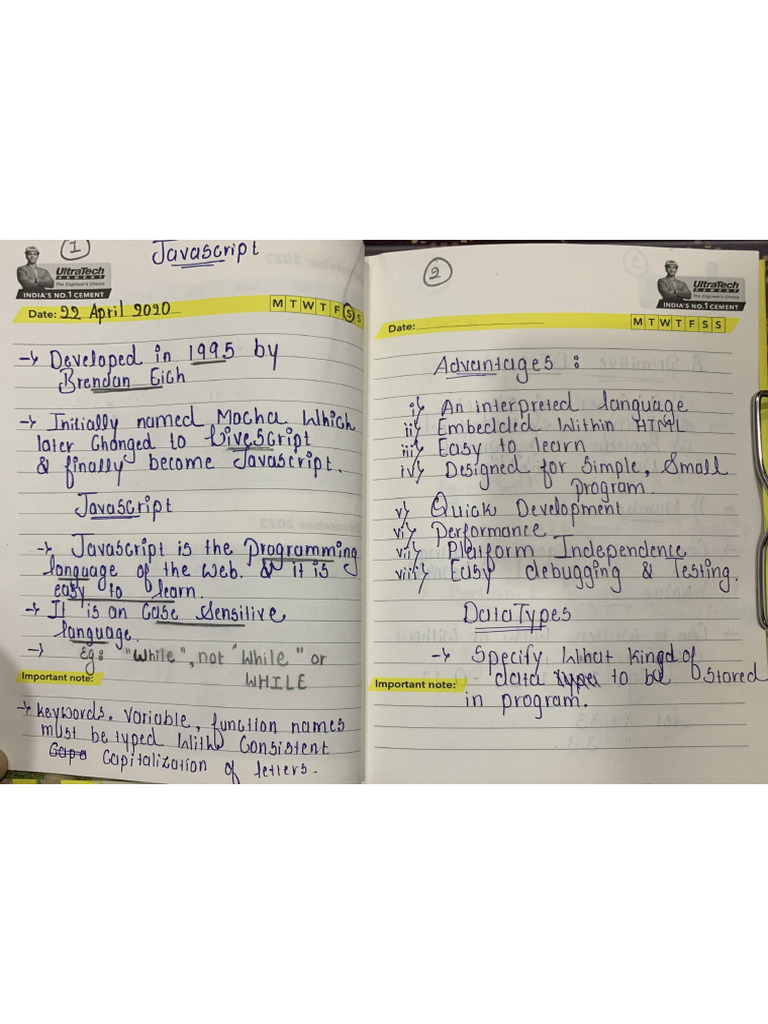 1
Javascript
UltraTech
CEMENT
The Engineer's Choice
INDIA'S NO.1 CEMENT
Date: 22 April 2020
M T W T F S S
→ Developed in 1995 by
Brendan Eich
→ Initially named Mocha Which
later Changed to LiveScript
& finally become Javascript.
Javascript
→ Javascript is the Programming
language of the Web. & it is
easy to learn.
→ It is an Case Sensitive
language.
→ Eg: "While", not "While" or
WHILE
Important note:
→ keywords, Variable, function names
must be typed With Consistent
Capitalization of letters.
2
UltraTech
CEMENT
The Engineer's Choice
INDIA'S NO.1 CEMENT
Date:
M T W T F S S
Advantages :
i) An interpreted language
ii) Embedded Within HTML
iii) Easy to learn
iv) Designed for Simple, Small
program.
v) Quick Development
vi) Performance
vii) Platform Independence
viii) Easy debugging & Testing.
DataTypes
→ Specify What kind of
Important note:
data to be Stored
in program.